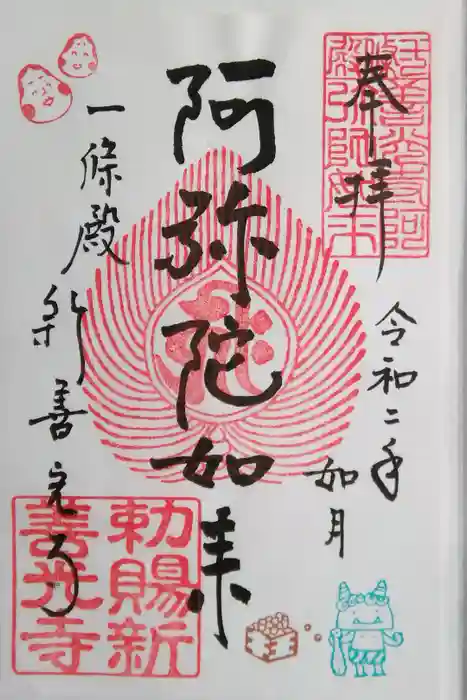 奉拝
令和二年
如月
阿弥陀如来
一條殿
新善光寺
勅賜新
善光寺